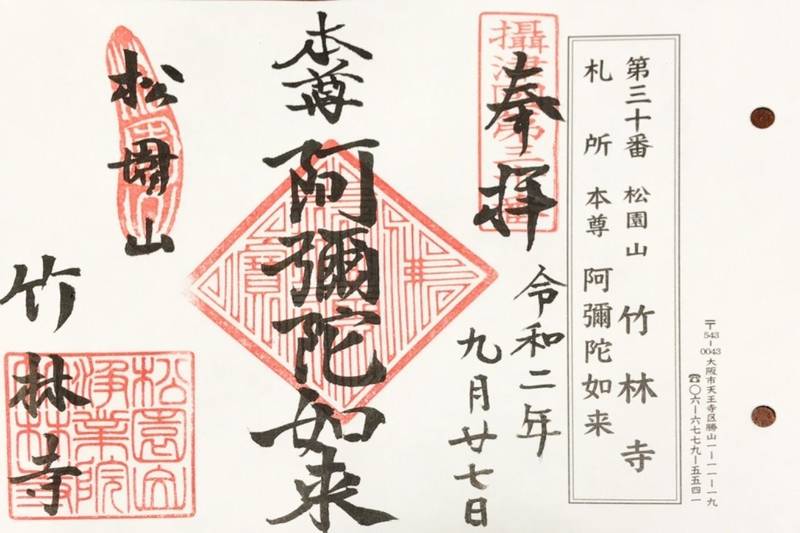 〒543-0043 大阪市天王寺区勝山一-一一-一九
☎〇六-六七七九-五五四一
第三十番 松園山 竹林寺
札所 本尊 阿彌陀如来
攝津國第三
奉拝
令和二年
九月廿七日
本尊 阿彌陀如来
松園山
竹林寺
松園山
浄業院
竹林寺